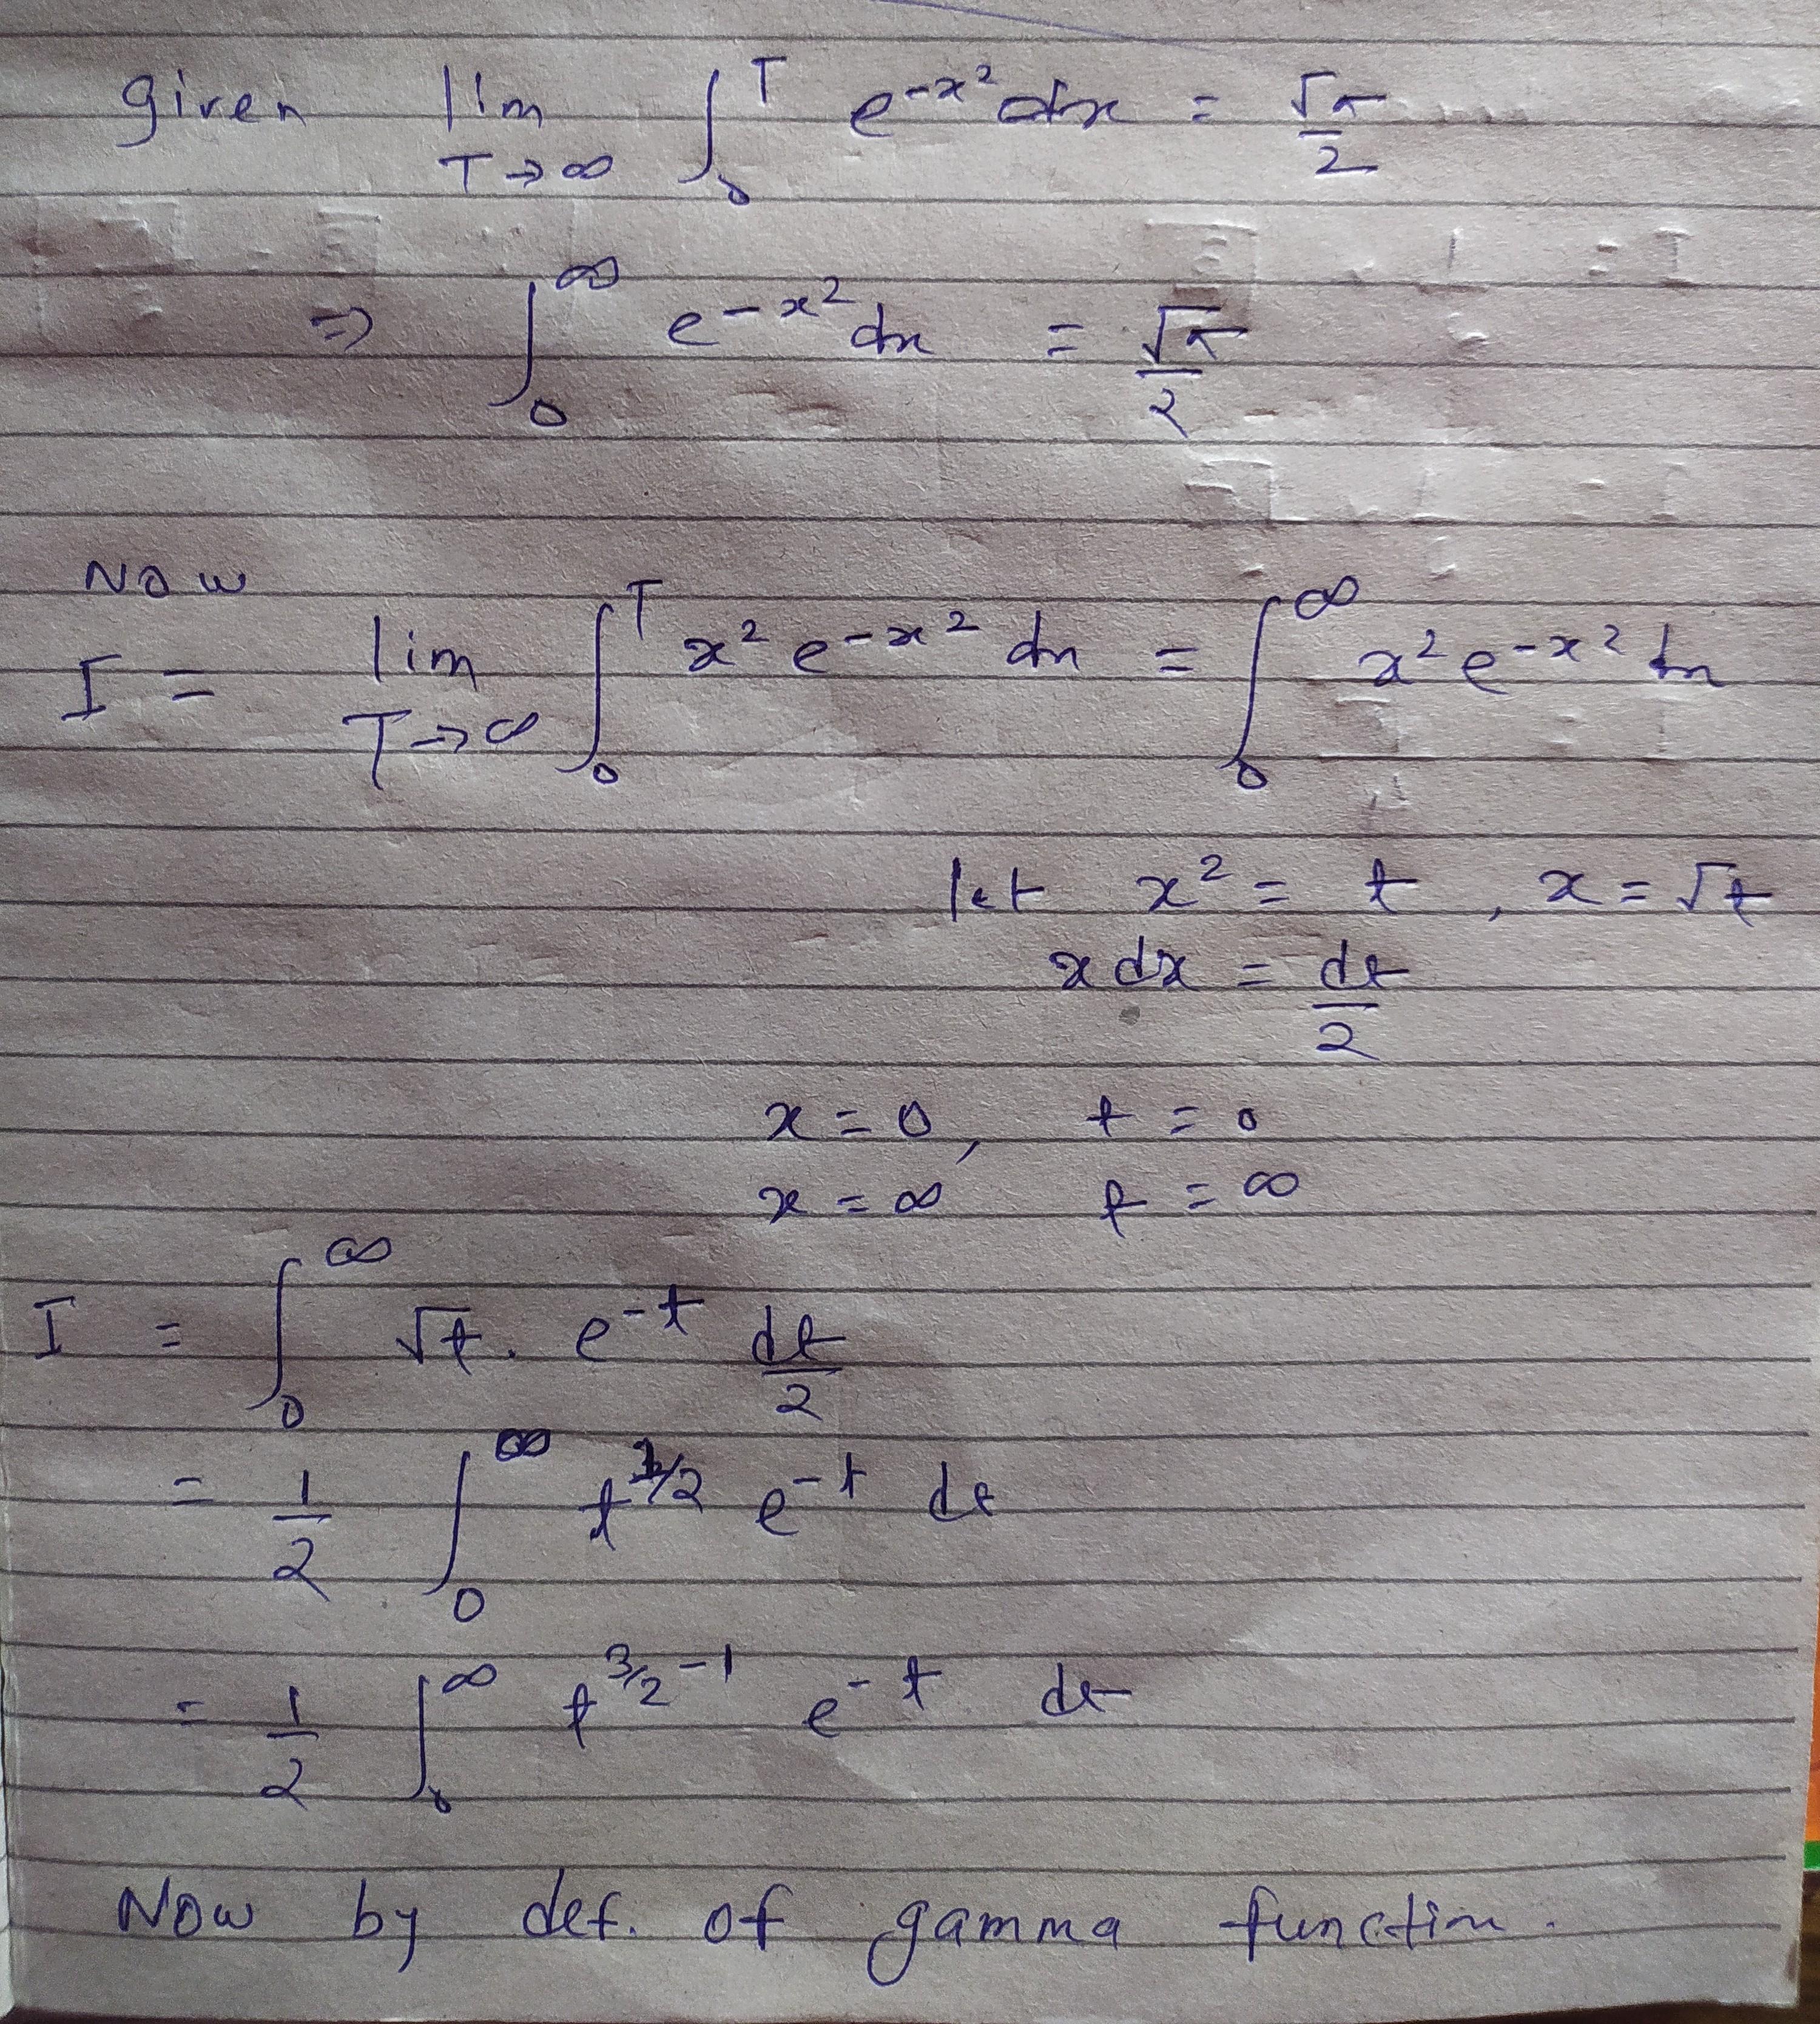 Given lim T→∞ ∫₀ᵀ e^{-x²} dx = √π/2
⇒ ∫₀^∞ e^{-x²} dx = √π/2
Now
I = lim T→∞ ∫₀ᵀ x² e^{-x²} dx = ∫₀^∞ x² e^{-x²} dx
let x² = t , x = √t
x dx = dt/2
x = 0, t = 0
x = ∞ t = ∞
I = ∫₀^∞ √t . e^{-t} dt/2
= 1/2 ∫₀^∞ t^{1/2} e^{-t} dt
= 1/2 ∫₀^∞ t^{3/2 - 1} e^{-t} dt
Now by def. of gamma function.